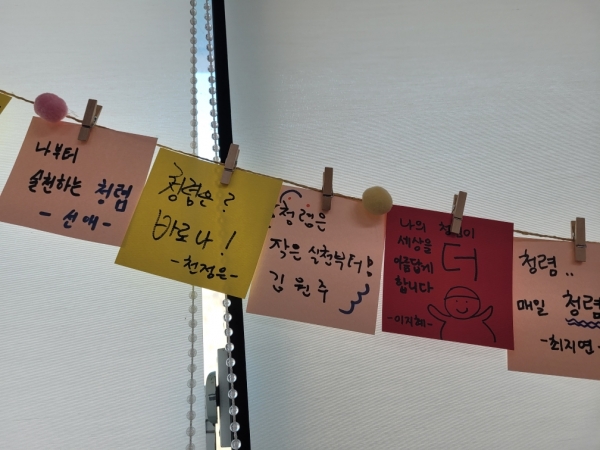 나부터
실천하는 청렴
- 선애 -
청렴은?
바로 나!
- 천정은 -
청렴은
작은 실천부터!
김원주
나의 청렴이
세상을
더
아름답게
합니다
- 이지혜 -
청렴..
매일 청렴
- 최지연 -